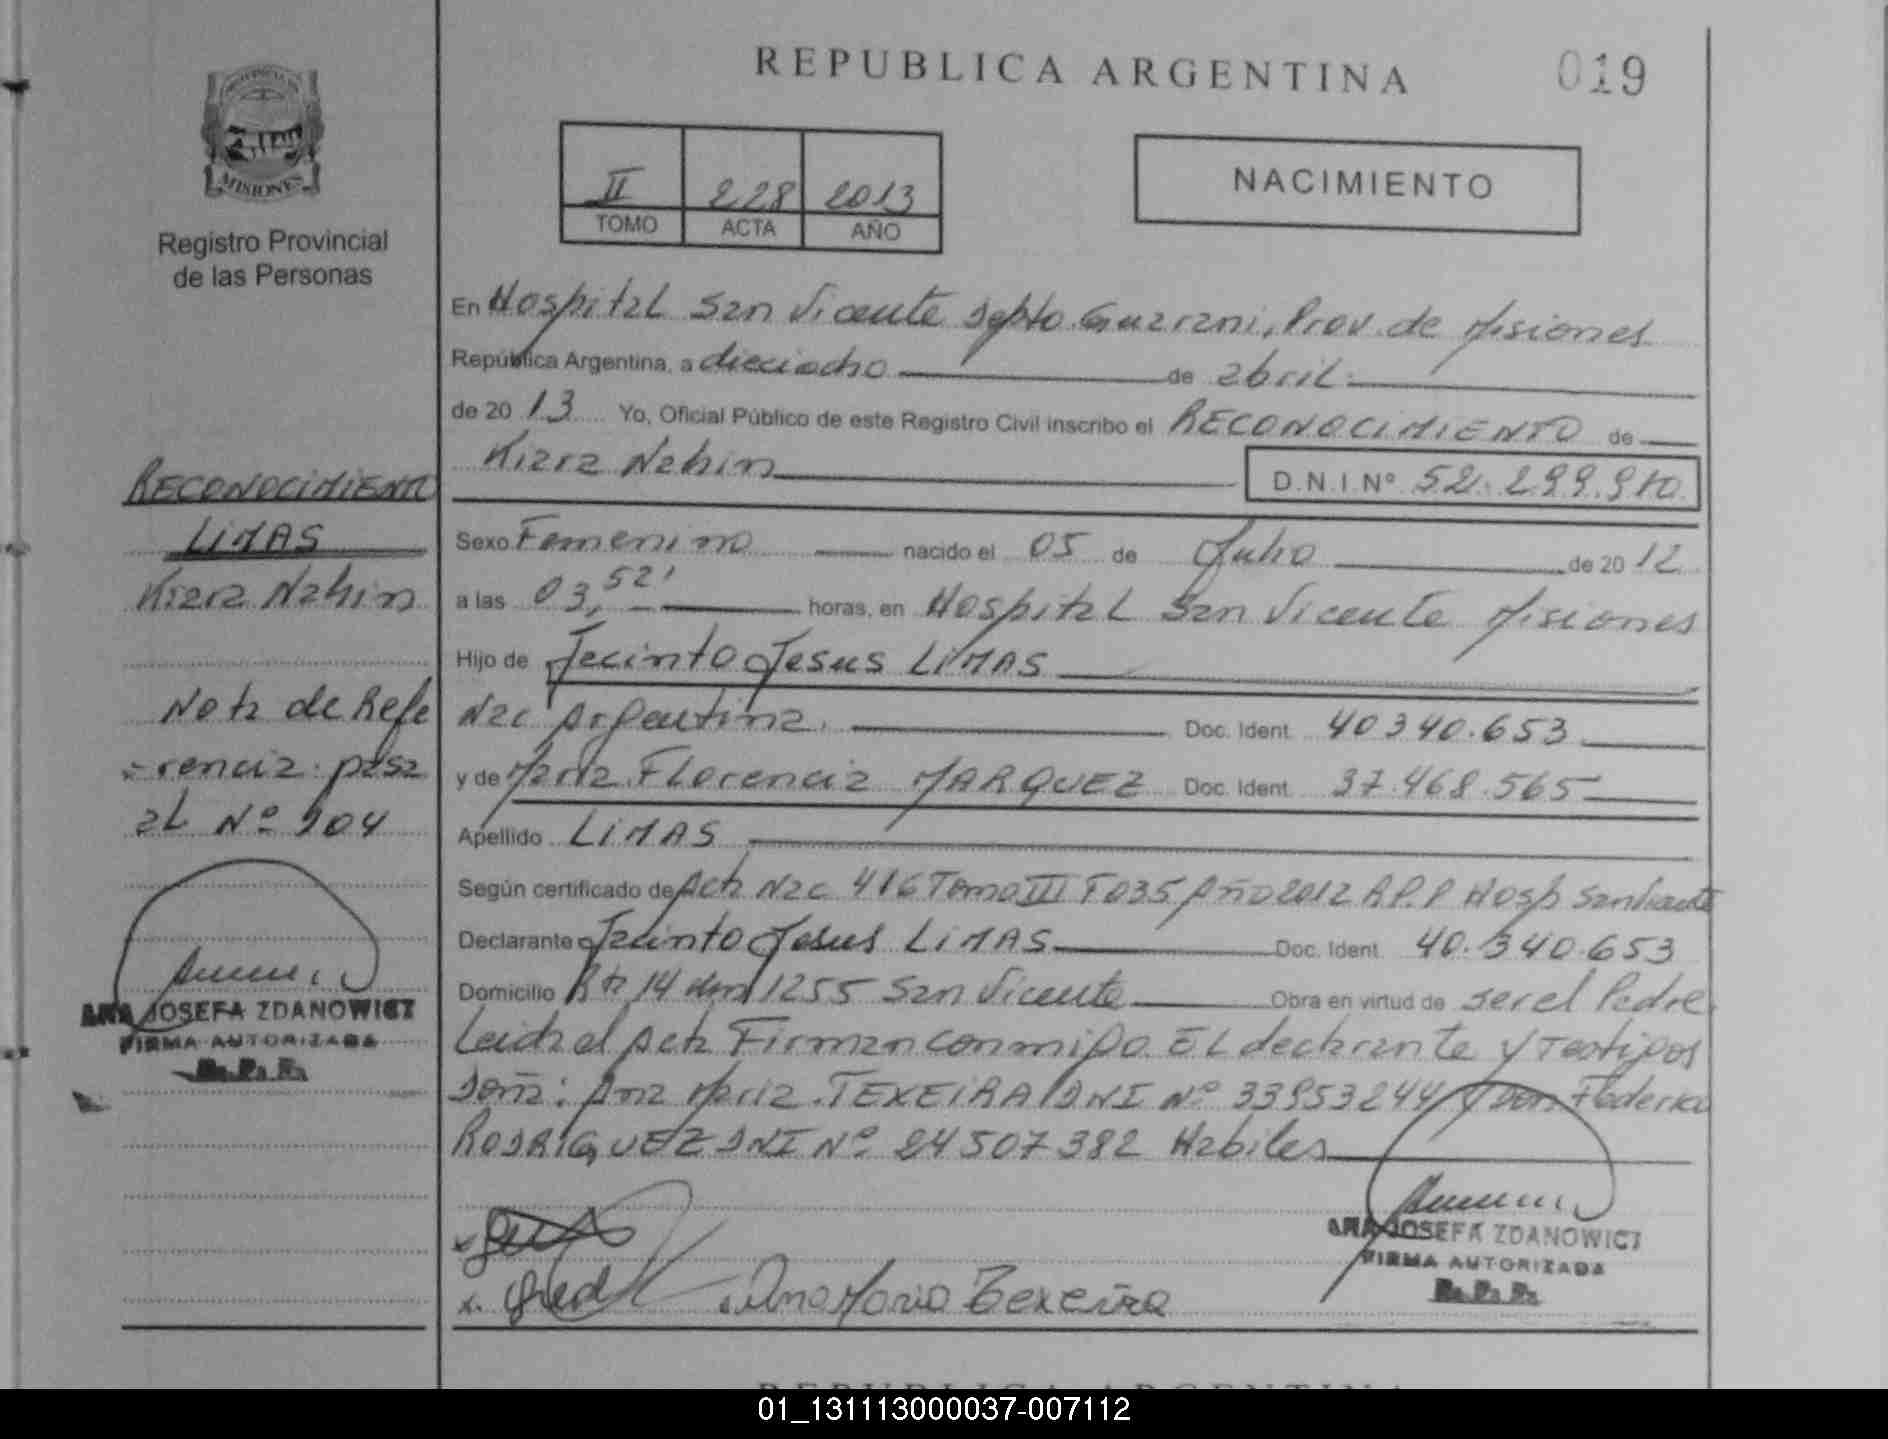 REPUBLICA ARGENTINA
019
PROVINCIA DE
MISIONES
Registro Provincial
de las Personas
II 228 2013
TOMO ACTA AÑO
NACIMIENTO
En Hospital San Vicente Dpto. Guarani, Prov. de Misiones
República Argentina, a dieciocho de abril
de 2013 Yo, Oficial Público de este Registro Civil inscribo el RECONOCIMIENTO de
Kiara Nahin D.N.I.Nº 52.299.910
Sexo Femenino nacido el 05 de Julio de 2012
a las 03,52' horas, en Hospital San Vicente Misiones
Hijo de Jacinto Jesus LIMAS
Nac Argentina. Doc. Ident. 40340.653
y de Maria Florencia MARQUEZ Doc. Ident. 37.468.565
Apellido LIMAS
Según certificado de Acta Nac 416 Tomo III F035 Año 2012 R.P.P Hosp San Vicente
Declarante Jacinto Jesus LIMAS Doc. Ident. 40.340.653
Domicilio Rta 14 km 1255 San Vicente Obra en virtud de ser el Padre
Leida el Acta Firman conmigo EL declarante y Testigos
Doña: Ana Maria TEXEIRA DNI Nº 33953244 y Don Federico
RODRIGUEZ DNI Nº 24507382 Habiles
Ana Maria Texeira
ANA JOSEFA ZDANOWICZ
FIRMA AUTORIZADA
R. P. P.
RECONOCIMIENTO
LIMAS
Kiara Nahin
Nota de Refe
-rencia pasa
al Nº 104
ANA JOSEFA ZDANOWICZ
FIRMA AUTORIZADA
R. P. P.
REPUBLICA ARGENTINA
01_131113000037-007112